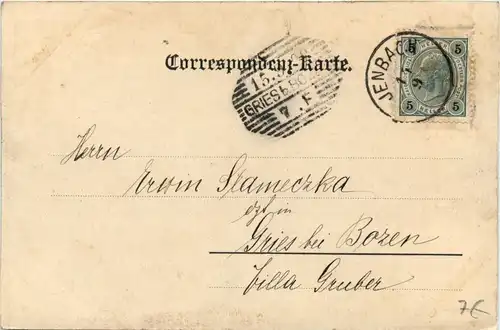 Correspondenz-Karte.
JENBACH
5 5
5 5
15.
GRIES b. BOZEN
7.F
Herrn
Erwin Stameczka
dzt in
Gries bei Bozen
Villa Gruber.
7€